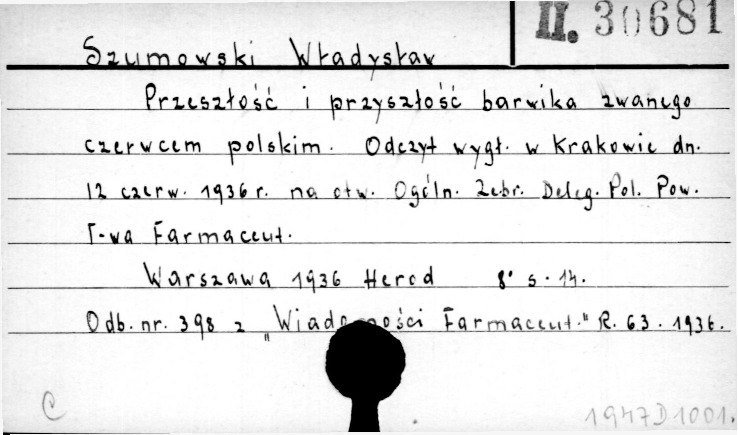 II. 30681
Szumowski Władysław
Przeszłość i przyszłość barwika zwanego
czerwcem polskim. Odczyt wygł. w Krakowie dn.
12 czerw. 1936 r. na otw. Ogóln. Zebr. Deleg. Pol. Pow.
T-wa Farmaceut.
Warszawa 1936 Herod 8° s. 14.
Odb. nr. 398 z „Wiadomości Farmaceut." R. 63. 1936.
C 1947D1001.